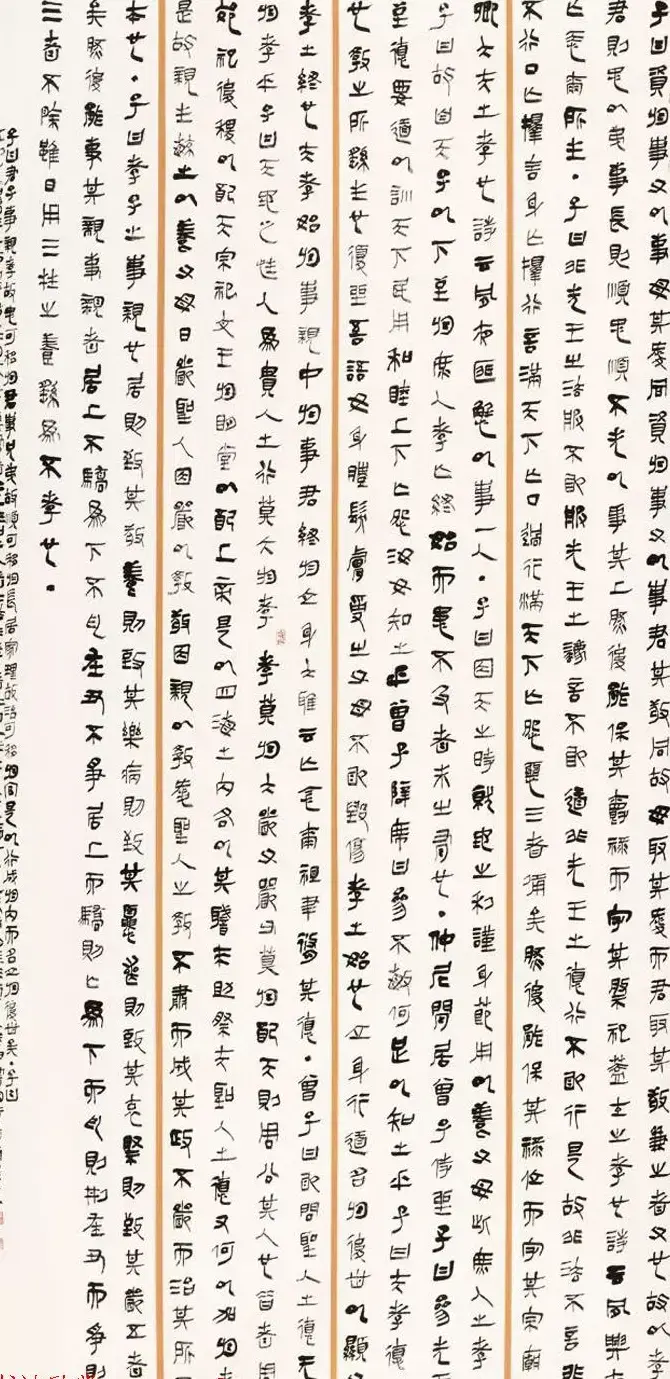 子曰資於事父以事母其愛同資於事父以事君其敬同故母取其愛而君取其敬兼之者父也故以孝
君則忠以弟事長則順忠順不失以事其上然後能保其爵祿而守其祭祀蓋士之孝也詩云夙興
亡忝爾所生·子曰非先王之法服不敢服先王之法言不敢道非先王之德行不敢行是故非法不言非
不行口亡擇言身亡擇行言滿天下亡口過行滿天下亡怨惡三者備矣然後能保其祿位而守其宗廟
卿大夫之孝也詩云夙夜匪懈以事一人·子曰因天之時就地之利謹身節用以養父母此庶人之孝
子曰故自天子以下至於庶人孝亡終始而患不及者未之有也·仲尼閒居曾子侍坐子曰參先
至德要道以訓天下民用和睦上下亡怨汝知之乎曾子避席曰參不敏何足以知之乎子曰夫孝德
也教之所繇生也復坐吾語汝身體髮膚受之父母不敢毀傷孝之始也立身行道名於後世以顯父
孝之終也夫孝始於事親中於事君終於立身大雅云亡念爾祖聿脩其德·曾子曰敢問聖人之德亡
於孝乎子曰天地之性人為貴人之行莫大於孝孝莫於大嚴父嚴父莫於配天則周公其人也昔者周
郊祀後稷以配天宗祀文王於明堂以配上帝是以四海之內各以其職來助祭夫聖人之德又何以加於
是故親生毓之以養父母日嚴聖人因嚴以教敬因親以教愛聖人之教不肅而成其政不嚴而治其所
本也·子曰孝子之事親也居則致其敬養則致其樂病則致其憂喪則致其哀祭則致其嚴五者
矣然後能事其親事親者居上不驕為下不亂在丑不爭居上而驕則亡為下而亂則刑在丑而爭則
三者不除雖日用三牲之養繇為不孝也·
子曰君子事親孝故忠可移於君事兄弟故順可移於長居家理故治可移於官是以行成於內而名立於後世矣·子曰